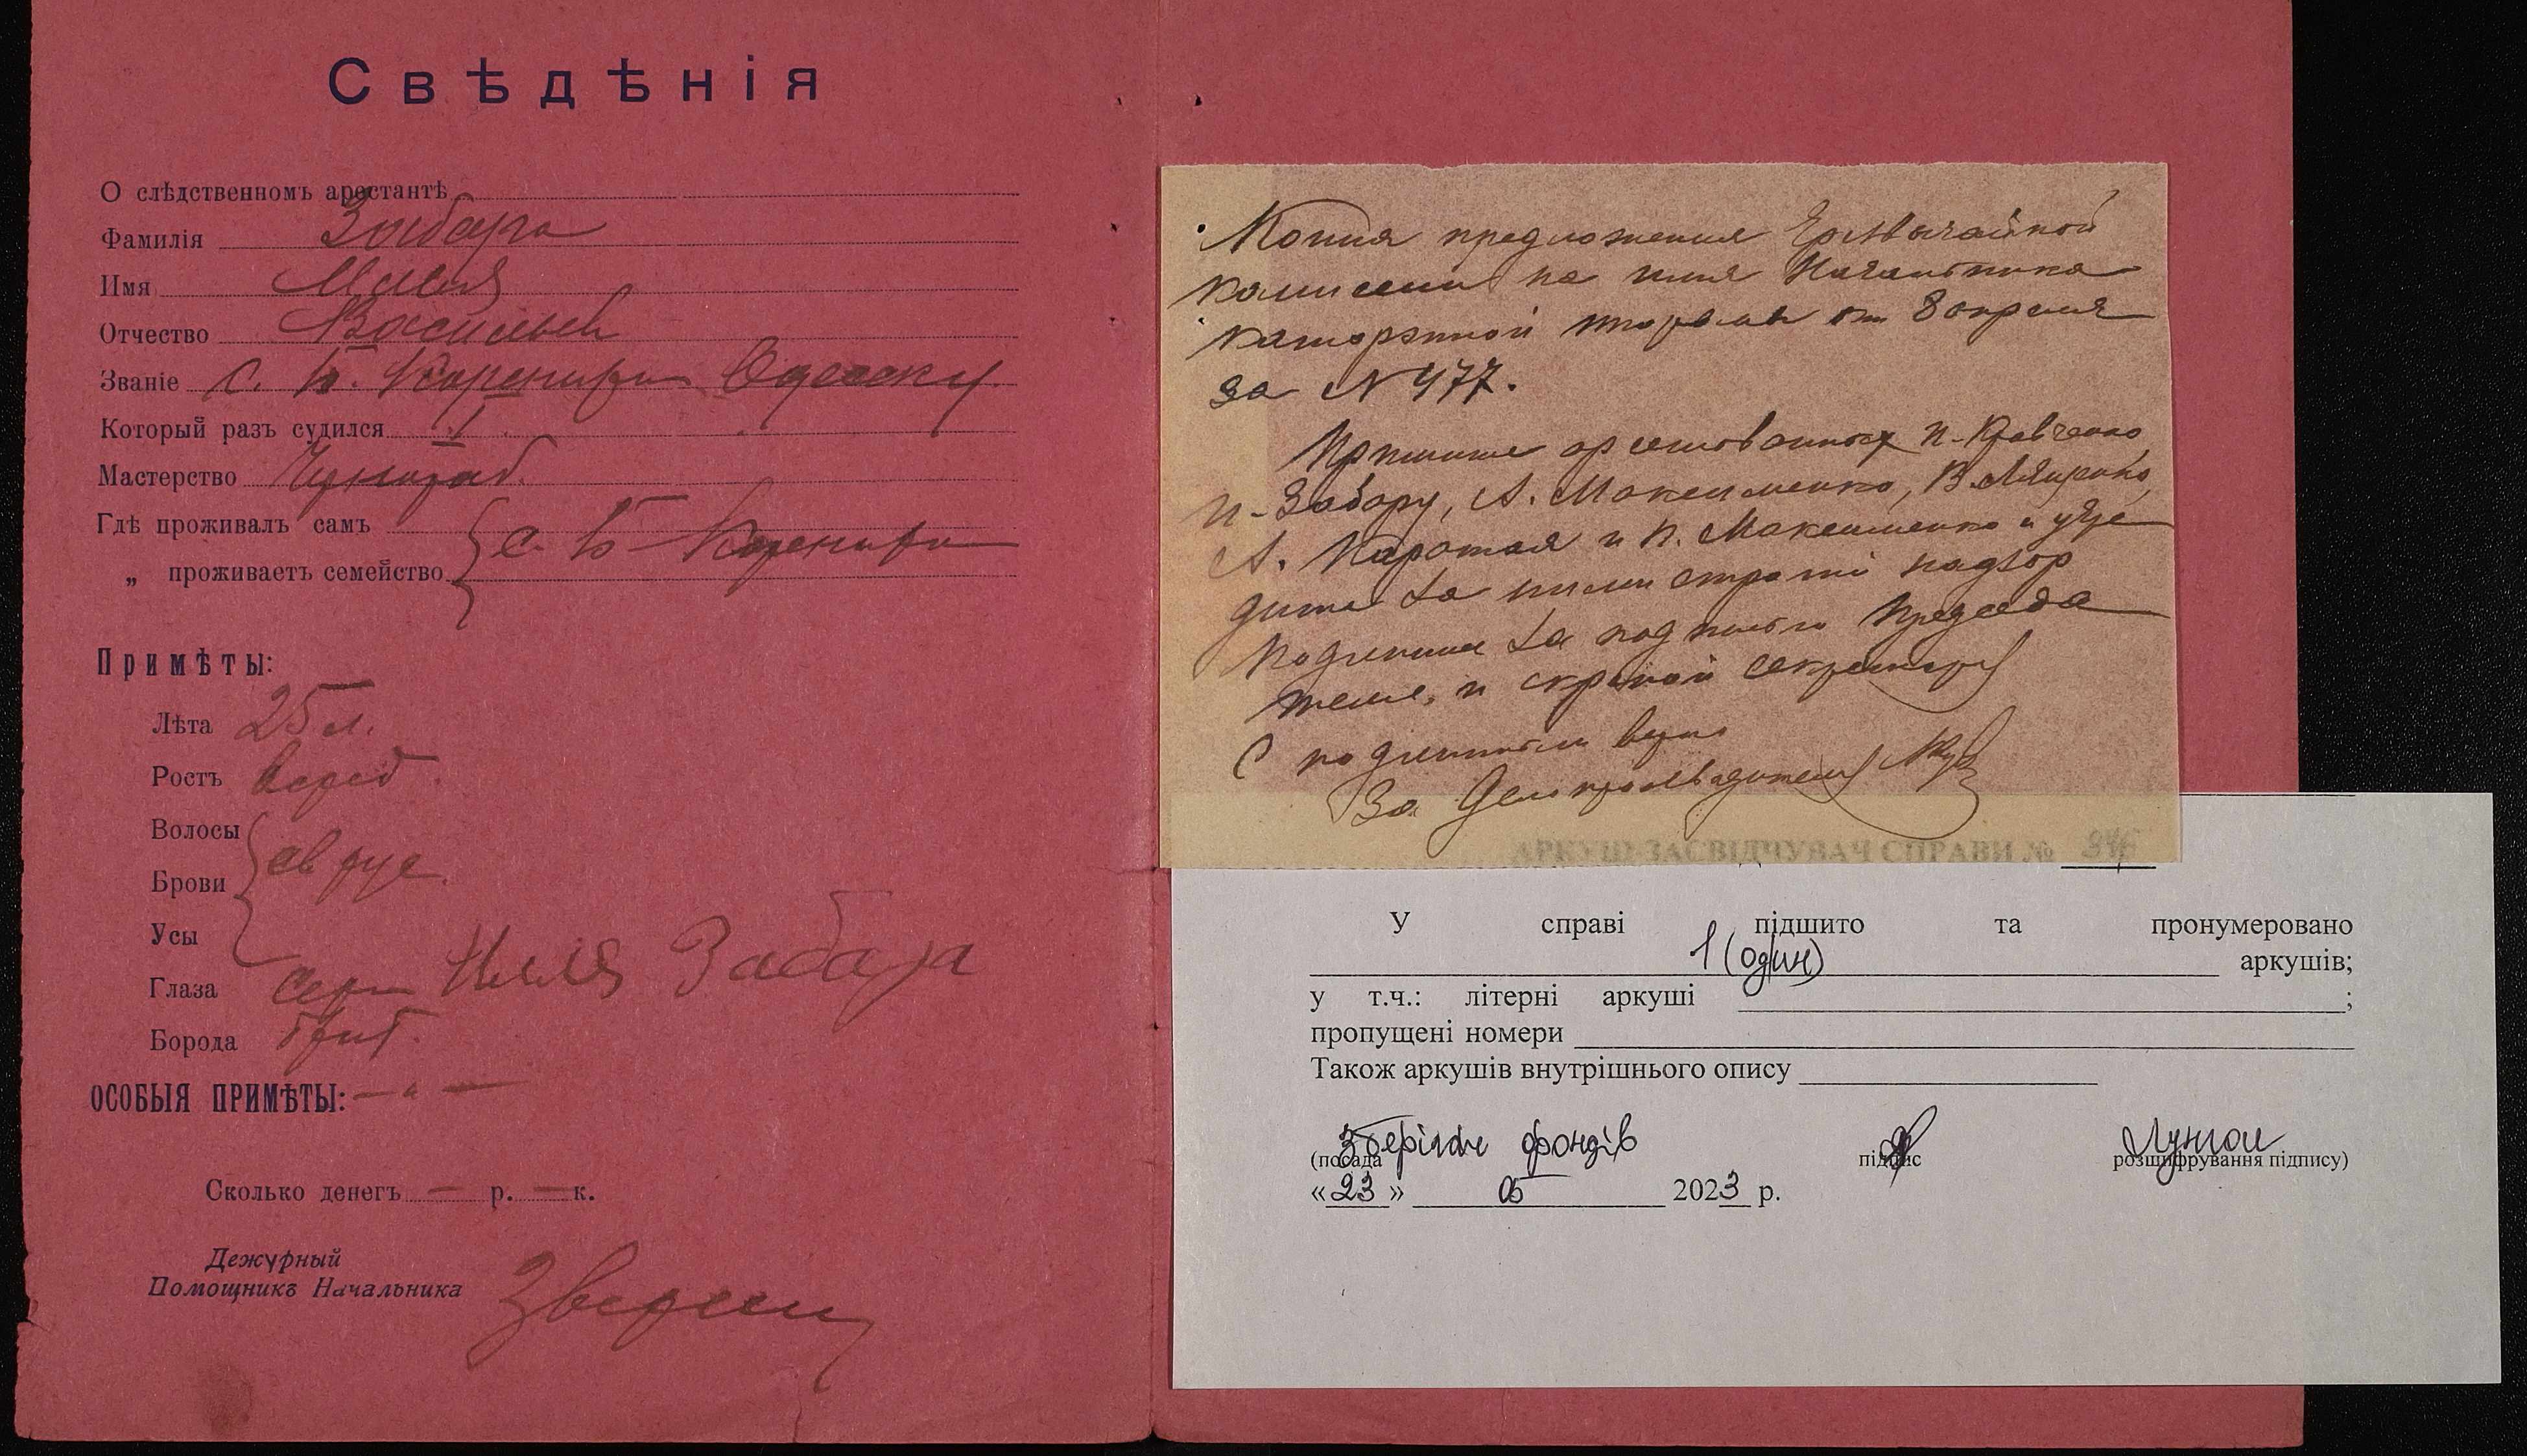 Свѣдѣнія
О слѣдственномъ арестантѣ
Фамилія Забара
Имя Илья
Отчество Васильев
Званіе с. Б. Корениха Одесск у.
Который разъ судился I
Мастерство Чернораб.
Гдѣ проживалъ самъ
с. Б Корениха
„ проживаетъ семейство
Примѣты:
Лѣта 25 л.
Ростъ сред
Волосы
св рус
Брови
Усы
Глаза серы Илля Забара
Борода брит.
ОСОБЫЯ ПРИМѢТЫ: — " —
Сколько денегъ — р. — к.
Дежурный
Помощникъ Начальника
Копия предложения Чрезвычайной
комиссии на имя Начальника
каторжной тюрьмы от 8 апреля
за N 477.
Примите арестованных И-Кравченко
И-Забару, А. Максименко, В.
А. Каротая и П. Максименко и учре
дите за ними строгий надзор
Подлинное за подписью Председа
теля, и скрепой секретаря
С подлинным верно
За Делопроизводителя
АРКУШ-ЗАСВІДЧУВАЧ СПРАВИ №
У справі підшито та пронумеровано
1 (один) аркушів;
у т.ч.: літерні аркуші ;
пропущені номери
Також аркушів внутрішнього опису
Зберігач фондів
(посада підпис розшифрування підпису)
«23» 05 2023 р.